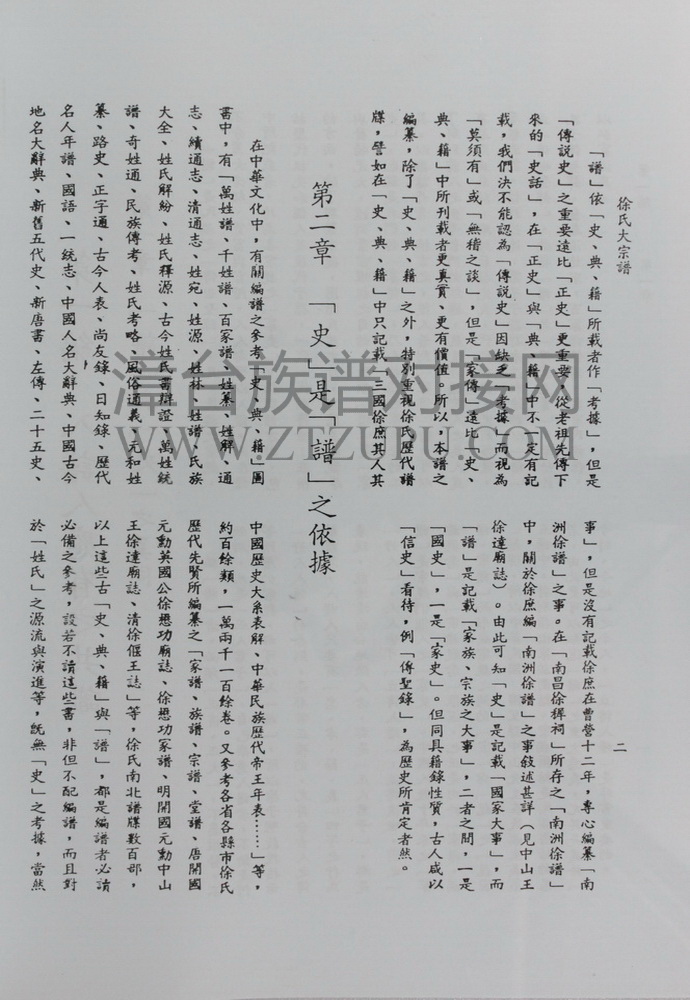 徐氏大宗譜
二
「譜」依「史、典、籍」所載者作「考據」，但是
「傳說史」之重要遠比「正史」更重要，從老祖先傳下
來的「史話」，在「正史」與「典、籍」中不一定有記
載，我們決不能認為「傳說史」因缺乏「考據」而視為
「莫須有」或「無稽之談」，但是「家傳」遠比「史、
典、籍」中所刊載者更真實、更有價值。所以，本譜之
編纂，除了「史、典、籍」之外，特別重視徐氏歷代譜
牒，譬如在「史、典、籍」中只記載「三國徐庶其人其
事」，但是沒有記載徐庶在曹營十二年，專心編纂「南
洲徐譜」之事。在「南昌徐穉祠」所存之「南洲徐譜」
中，關於徐庶編「南洲徐譜」之事敍述甚詳（見中山王
徐達廟誌）。由此可知「史」是記載「國家大事」，而
「譜」是記載「家族、宗族之大事」，二者之間，一是
「國史」，一是「家史」。但同具籍錄性質，古人咸以
「信史」看待，例「傳聖錄」，為歷史所肯定者然。
第二章　「史」是「譜」之依據
在中華文化中，有關編譜之參考「史、典、籍」圖
書中，有「萬姓譜、千姓譜、百家譜、姓纂、姓解、通
志、續通志、清通志、姓宛、姓源、姓林、姓譜、氏族
大全、姓氏解紛、姓氏釋源、古今姓氏書辯證、萬姓統
譜、奇姓通、民族傳考、姓氏考略、風俗通義、元和姓
纂、路史、正字通、古今人表、尚友錄、日知錄、歷代
名人年譜、國語、一統志、中國人名大辭典、中國古今
地名大辭典、新舊五代史、新唐書、左傳、二十五史、
中國歷史大系表解、中華民族歷代帝王年表……」等，
約百餘類，一萬兩千一百餘卷。又參考各省各縣市徐氏
歷代先賢所編纂之「家譜、族譜、宗譜、堂譜、唐開國
元勳英國公徐懋功廟誌、徐懋功家譜、明開國元勳中山
王徐達廟誌、清徐偃王誌」等，徐氏南北譜牒數百部，
以上這些古「史、典、籍」與「譜」，都是編譜者必讀
必備之參考，設若不讀這些書，非但不配編譜，而且對
於「姓氏」之源流與演進等，既無「史」之考據，當然
族谱对接网
WWW.ZTZUPU.COM